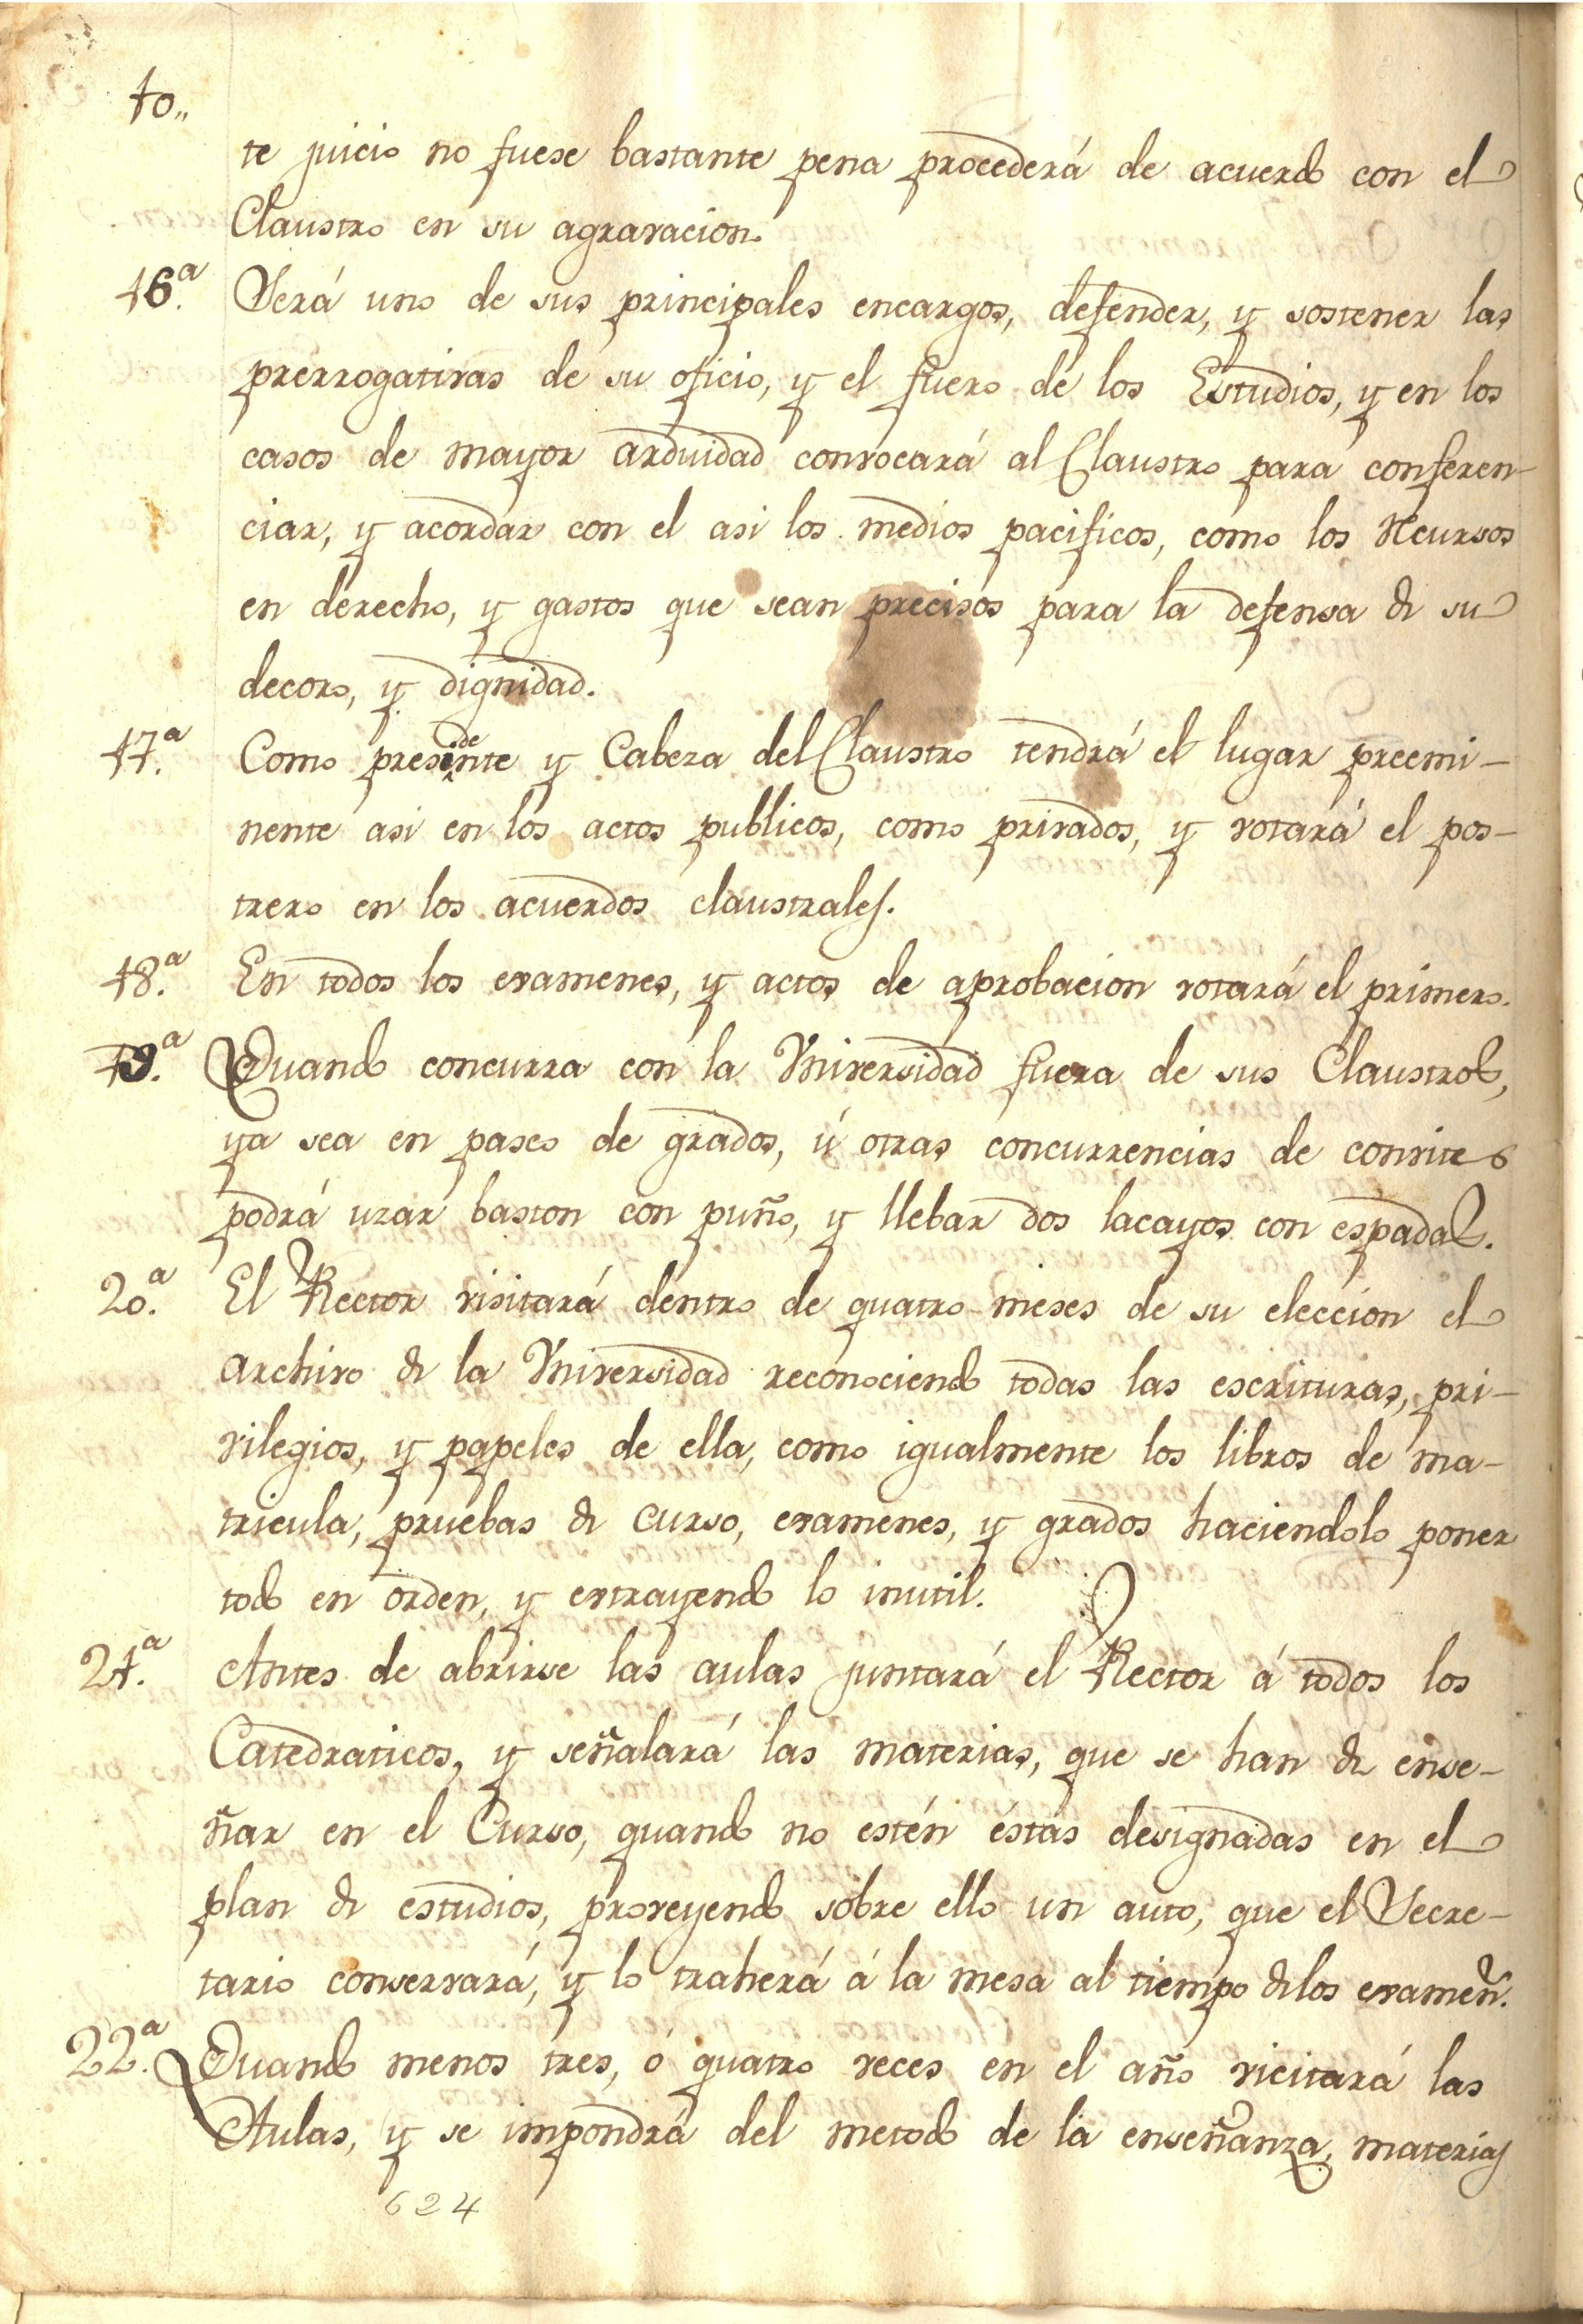 10,,
te juicio no fuese bastante pena procederá de acuerdo con el
Claustro en su agravacion.
16.ª Será uno de sus principales encargos, defender, y sostener las
prerrogativas de su oficio, y el fuero de los Estudios, y en los
casos de mayor arduidad convocará al Claustro para conferen-
ciar, y acordar con el asi los medios pacificos, como los Recursos
en derecho, y gastos que sean precisos para la defensa de su
decoro, y dignidad.
17.ª Como presidente y Cabeza del Claustro tendrá el lugar preemi-
nente asi en los actos publicos, como privados, y votará el pos-
trero en los acuerdos claustrales.
18.ª En todos los examenes, y actos de aprobacion votará el primero.
19.ª Quando concurra con la Universidad fuera de sus Claustros,
ya sea en paseo de grados, ú otras concurrencias de convites
podrá uzar baston con puño, y llebar dos lacayos con espadas.
20.ª El Rector visitará dentro de quatro meses de su eleccion el
archivo de la Universidad reconociendo todas las escrituras, pri-
vilegios, y papeles de ella, como igualmente los libros de ma-
tricula, pruebas de curso, examenes, y grados haciendolo poner
todo en orden, y extrayendo lo inutil.
21.ª Antes de abrirse las aulas juntará el Rector á todos los
Catedraticos, y señalará las materias, que se han de ense-
ñar en el Curso, quando no estén éstas designadas en el
plan de estudios, proveyendo sobre ello un auto, que el Secre-
tario conservará, y lo traherá á la mesa al tiempo de los examen.^s
22.ª Quando menos tres, ó quatro veces en el año vicitará las
Aulas, y se impondrá del metodo de la enseñanza, materias
624